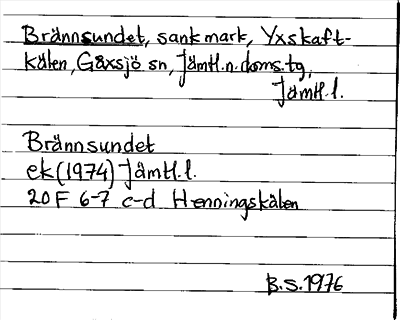 Brännsundet, sank mark, Yxskaft-
kälen, Gåxsjö sn, Jämtl.n.doms.tg,
Jämtl.l.
Brännsundet
ek(1974) Jämtl.l.
20F 6-7 c-d Henningskälen
B.S.1976